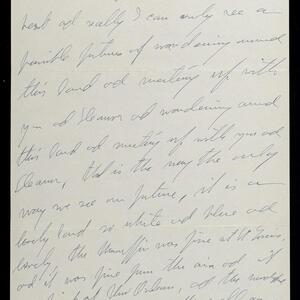 and really I can only see a
possible future of wandering around
this land and meeting up with
you and Eleanor and wandering around
this land and meeting up with you and
Eleanor, this is the way the only
way we see our future, it is a
lovely land so white and blue and
lovely, the was fine at St Louis,
and it was fine from the air and if
New Orleans, and the